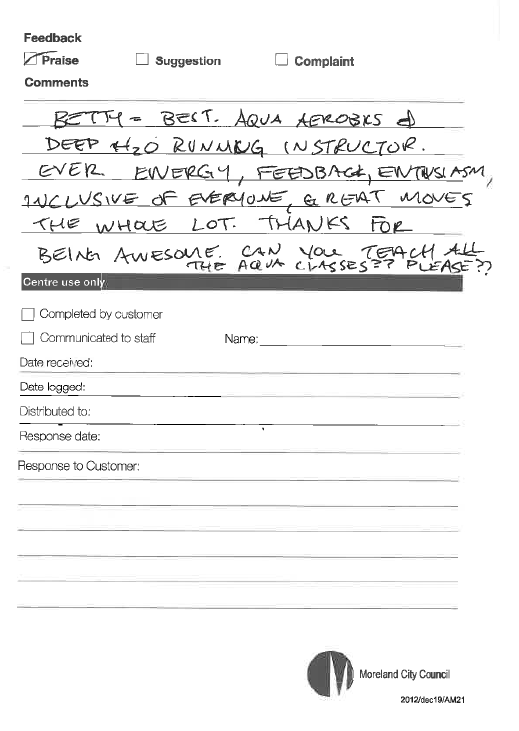 Feedback
Praise Suggestion Complaint
Comments
BETTY = BEST. AQUA AEROBICS &
DEEP H2O RUNNING INSTRUCTOR.
EVER. ENERGY, FEEDBACK, ENTHUSIASM,
INCLUSIVE OF EVERYONE, GREAT MOVES
THE WHOLE LOT. THANKS FOR
BEING AWESOME. CAN YOU TEACH ALL
THE AQUA CLASSES?? PLEASE??
Centre use only
Completed by customer
Communicated to staff Name:
Date received:
Date logged:
Distributed to:
Response date:
Response to Customer:
Moreland City Council
2012/dec19/AM21